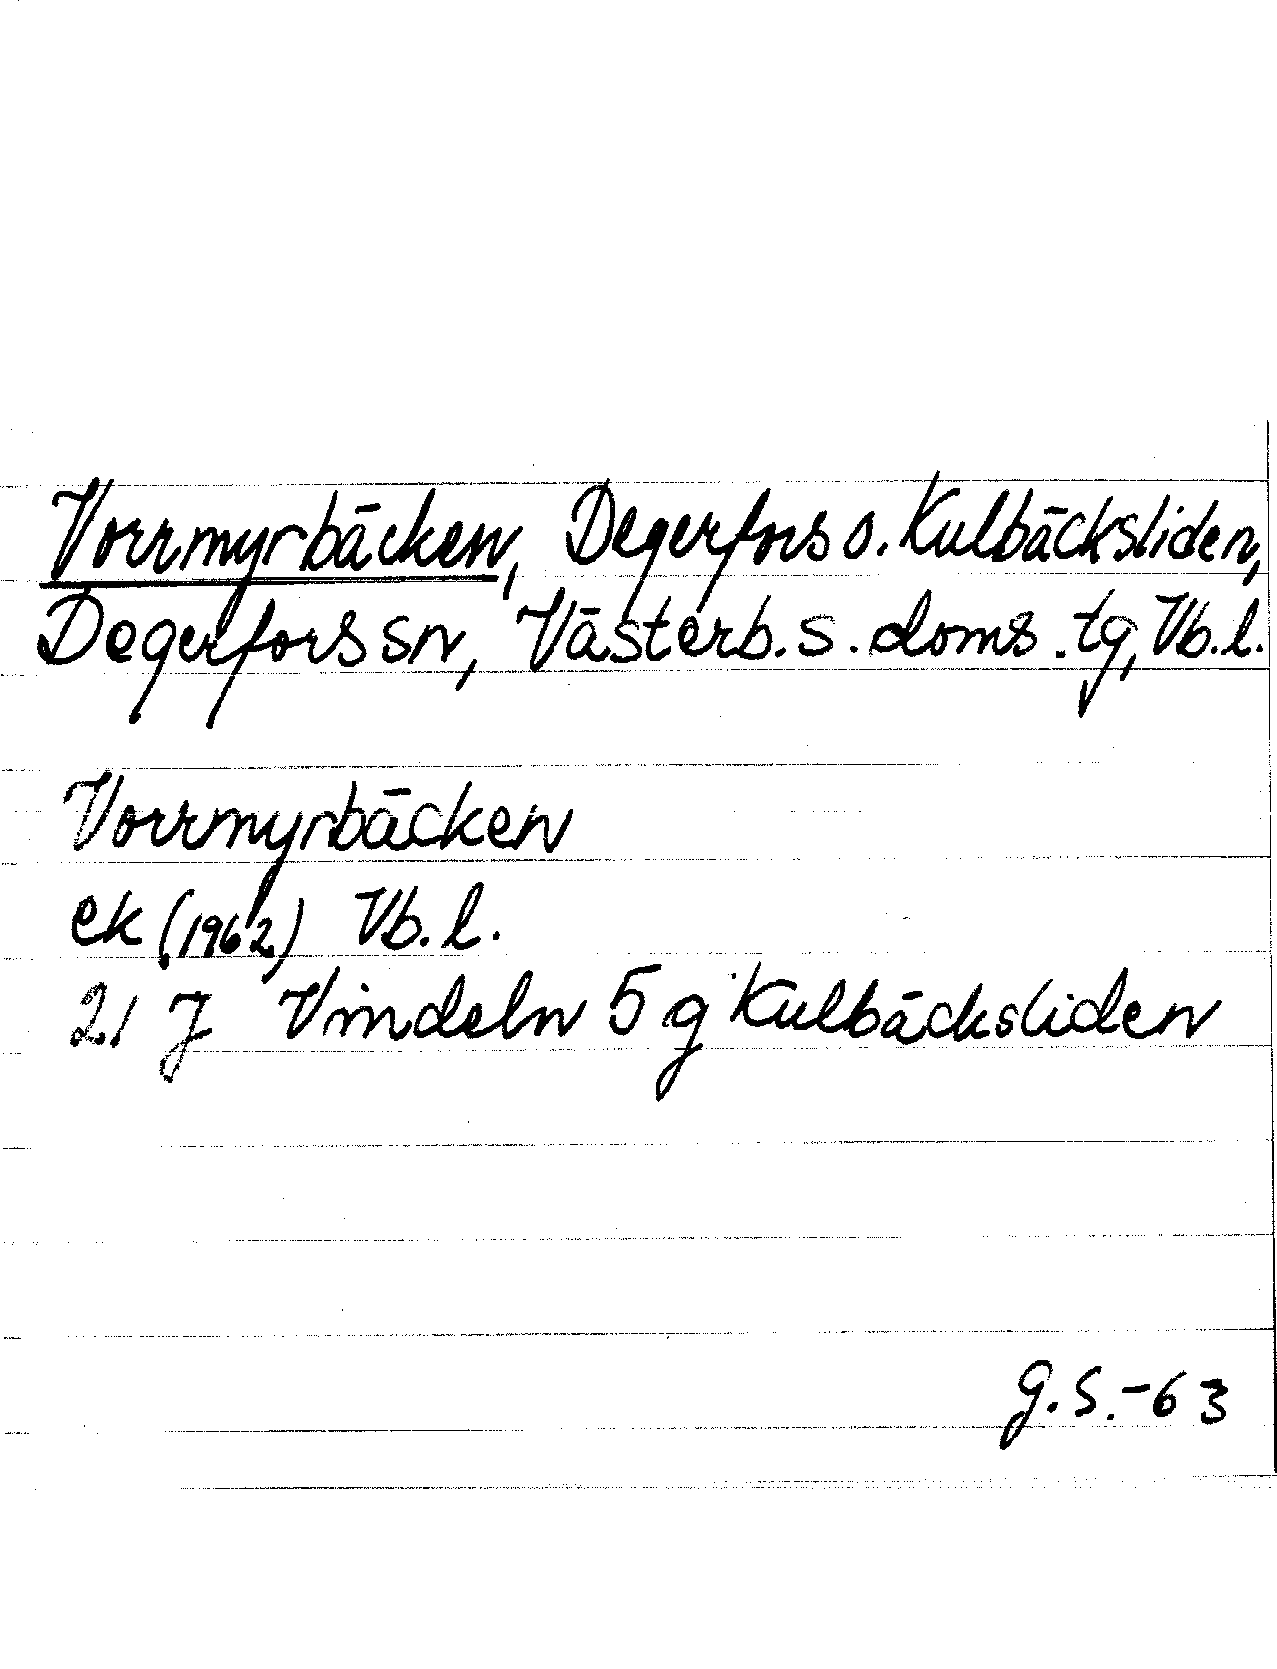 Vorrmyrbäcken, Degerfors o. Kulbäcksliden,
Degerfors sn, Västerb. s. doms. tg, Vb. l.
Vorrmyrbäcken
ek (1962) Vb. l.
21 J Vindeln 5 g Kulbäcksliden
g. S. -63